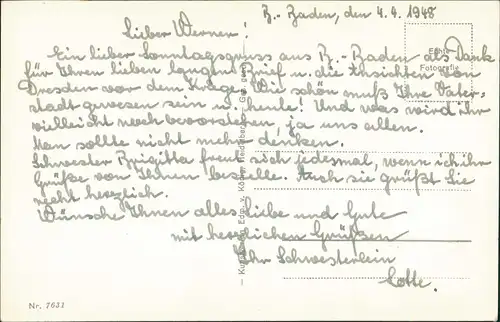 B.-Baden, den 4.4.1948
Lieber Werner!
Ein lieber Sonntagsgruss aus B.-Baden als Dank
für Ihren lieben langen Brief u. die Ansichten von
Dresden vor dem Kriege. Wie schön muß Ihre Vater-
stadt gewesen sein u. heute! Und was wird ihr
vielleicht noch bevorstehen, ja uns allen.
Man sollte nicht mehr denken.
Schwester Brigitta freut sich jedesmal, wenn ich ihr
Grüße von Ihnen bestelle. Auch sie grüßt Sie
recht herzlich.
Wünsche Ihnen alles Liebe und Gute
mit herzlichen Grüßen
Ihr Schwesterlein
Lotte.
Echte
Fotografie
Nr. 7631